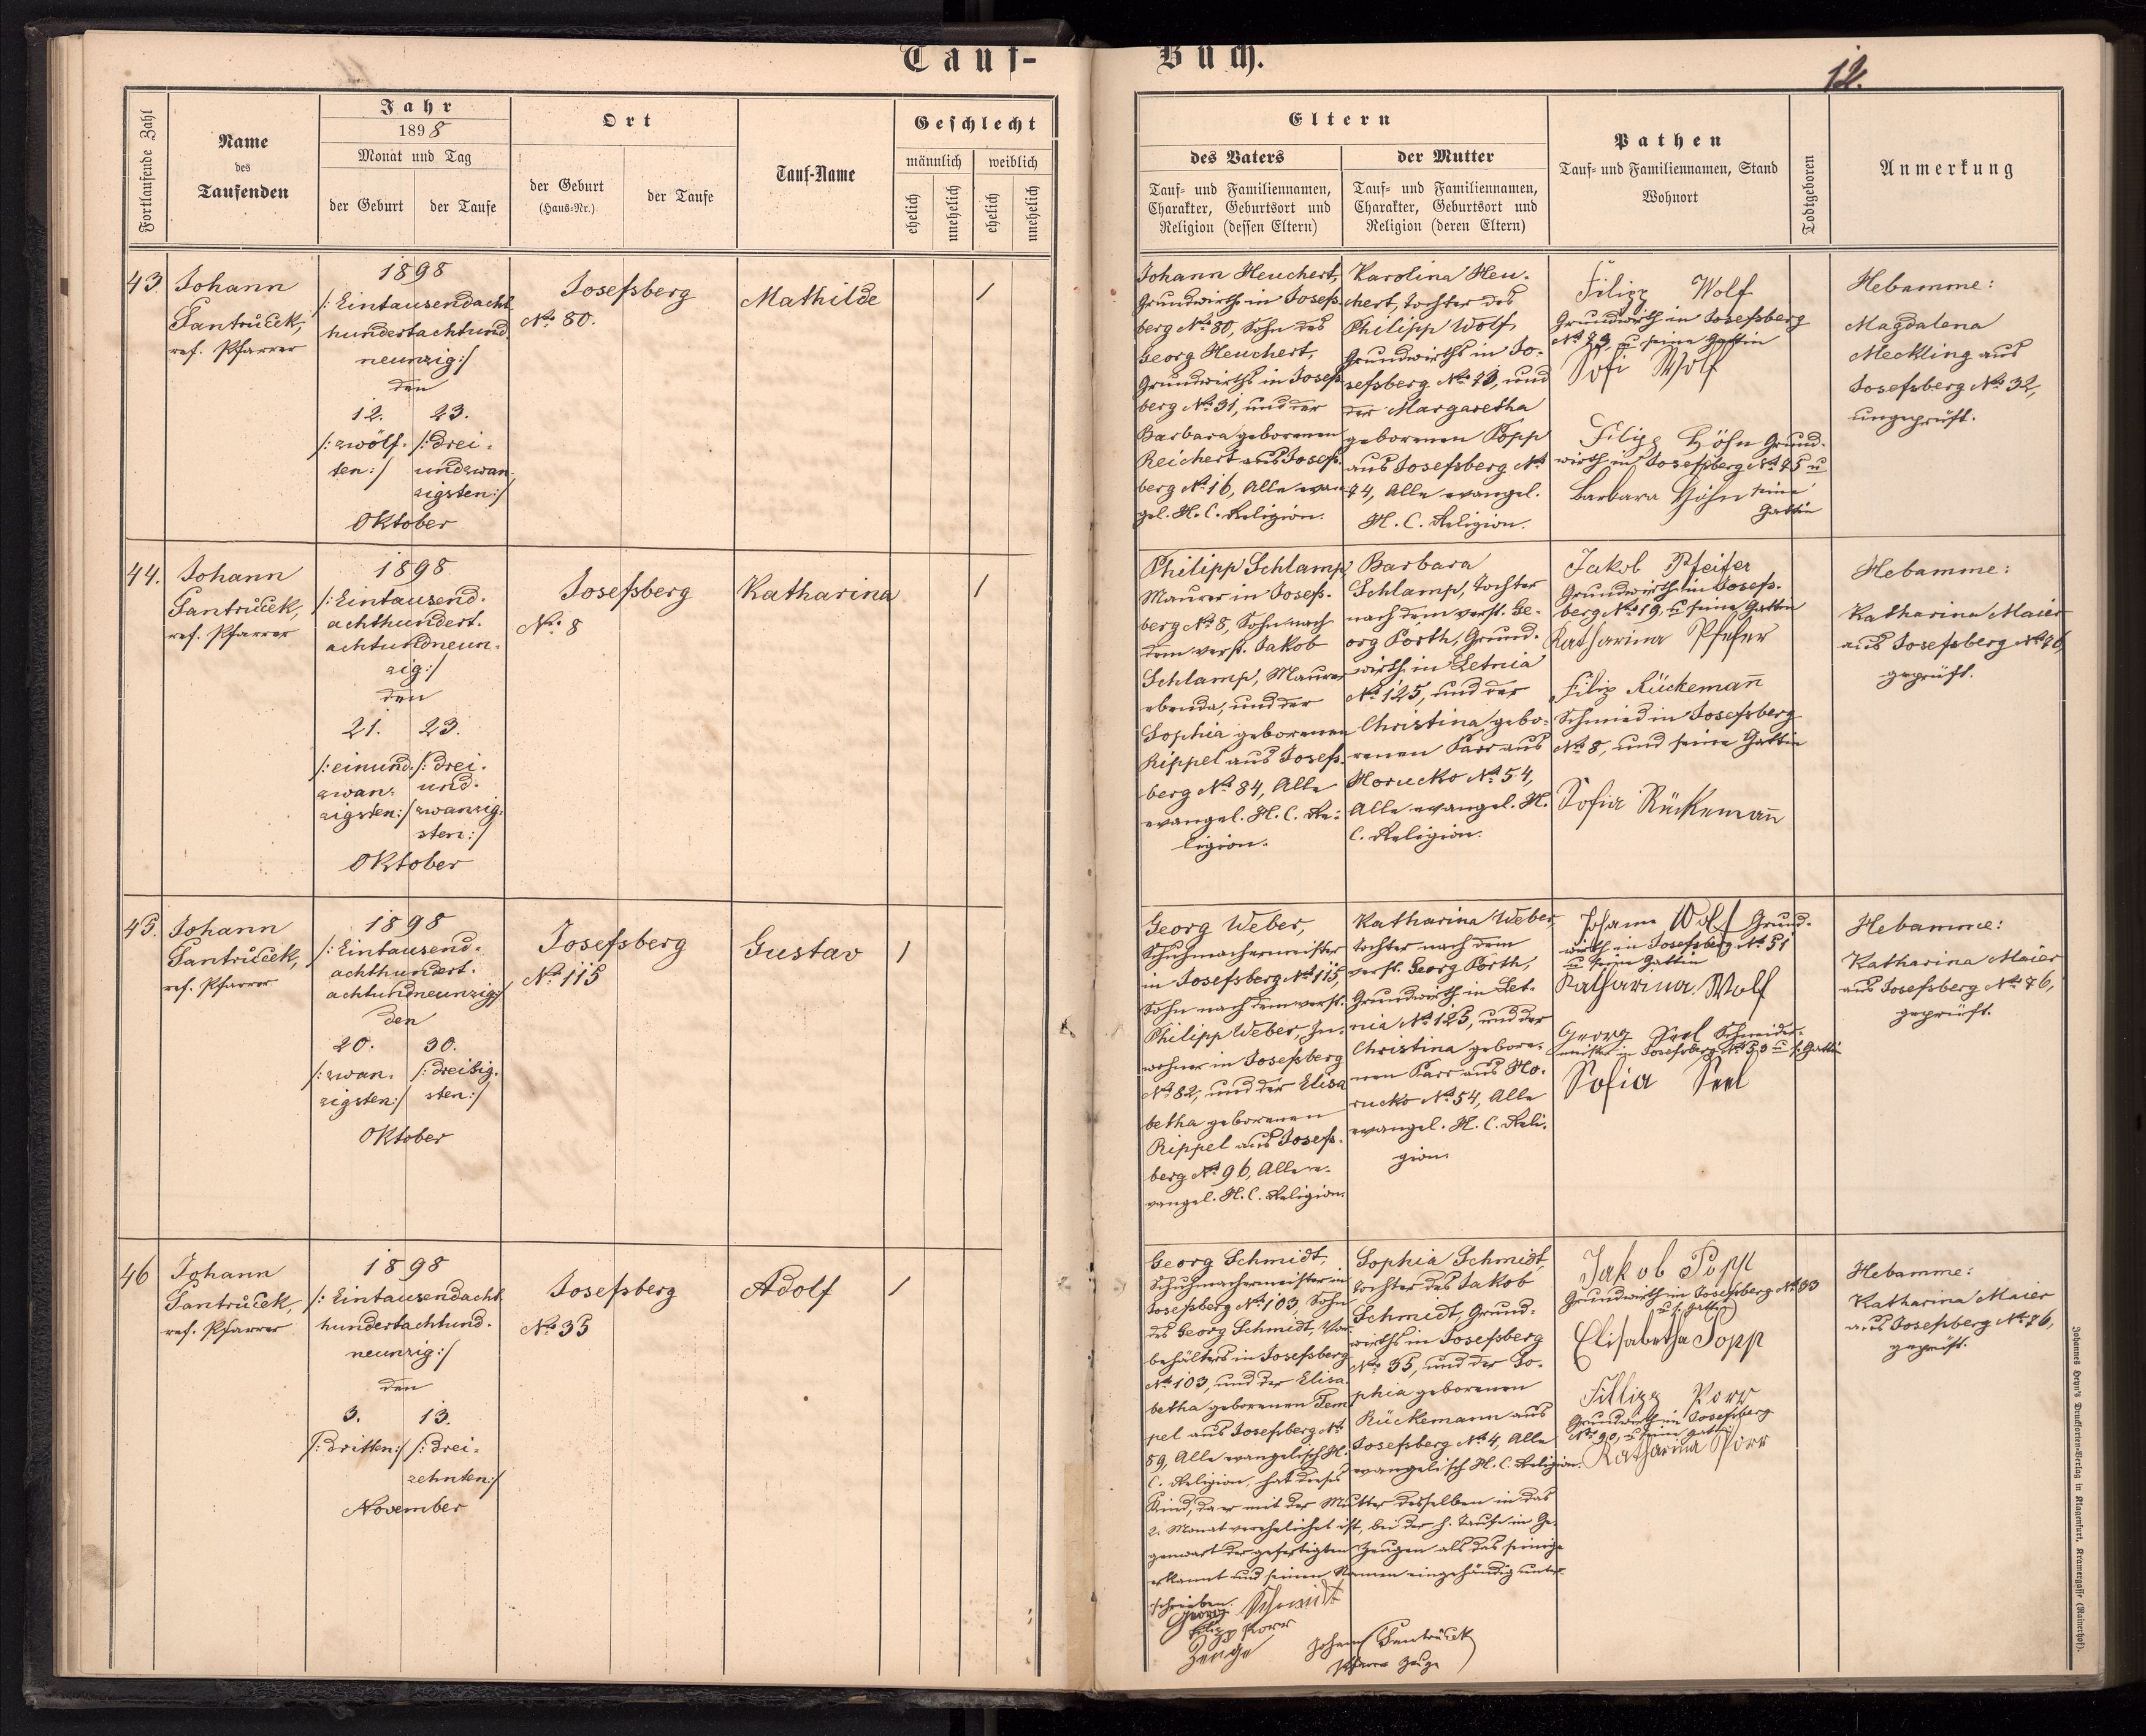 Tauf-
Buch.
12.
Fortlaufende Zahl
Name
des
Taufenden
Jahr
1898
Monat und Tag
der Geburt
der Taufe
Ort
der Geburt
(Haus-Nr.)
der Taufe
Tauf-Name
Geschlecht
männlich
weiblich
ehelich
unehelich
ehelich
unehelich
Eltern
des Vaters
Tauf- und Familiennamen,
Charakter, Geburtsort und
Religion (dessen Eltern)
der Mutter
Tauf- und Familiennamen,
Charakter, Geburtsort und
Religion (deren Eltern)
Pathen
Tauf- und Familiennamen, Stand
Wohnort
Todtgeboren
Anmerkung
43.
Johann
Fantrůček,
ref. Pfarrer
1898
/:Eintausendacht
hundertachtund
neunzig:/
den
12.
/:zwölf-
ten:/
23.
/:drei-
undzwan-
zigsten:/
Oktober
Josefsberg
No. 80.
Mathilde
/
Johann Heuchert,
Grundwirth in Josefs-
berg No. 80, Sohn des
Georg Heuchert,
Grundwirths in Josefs-
berg No. 31, und der
Barbara geborenen
Reichert aus Josefs-
berg No. 16, Alle evan-
gel. H. C. Religion.
Karolina Heu-
chert, Tochter des
Philipp Wolf,
Grundwirths in Jo-
sefsberg No. 73, und
der Margaretha
geborenen Popp
aus Josefsberg No.
74, Alle evangel.
H. C. Religion.
Filipp Wolf
Grundwirth in Josefsberg
No. 73, u seine Gattin
Sofi Wolf
Filipp Höhn Grund-
wirth in Josefsberg No. 75 u
Barbara Höhn seine
Gattin
Hebamme:
Magdalena
Meckling aus
Josefsberg No. 32,
ungeprüft.
44.
Johann
Fantrůček,
ref. Pfarrer
1898
/:Eintausend-
achthundert-
achtundneun-
zig:/
den
21.
/:einund-
zwan-
zigsten:/
23.
/:drei-
und-
zwanzig-
sten:/
Oktober
Josefsberg
No. 8
Katharina
/
Philipp Schlamp,
Maurer in Josefs-
berg No. 8, Sohn nach
dem verst. Jakob
Schlamp, Maurer
ebenda, und der
Sophia geborenen
Rippel aus Josefs-
berg No. 84, Alle
evangel. H. C. Re-
ligion.
Barbara
Schlamp, Tochter
nach dem verst. Ge-
org Porth, Grund-
wirth in Letnia
No. 125, und der
Christina gebo-
renen Karr aus
Horucko No. 54,
Alle evangel. H.
C. Religion.
Jakob Pfeifer
Grundwirth in Josefs-
berg No. 19, u seine Gattin
Katharina Pfefer
Filip Rückemañ
Schmied in Josefsberg
No. 8, und seine Gattin
Sofia Rückemañ
Hebamme:
Katharina Maier
aus Josefsberg No. 76,
geprüft.
45.
Johann
Fantrůček,
ref. Pfarrer
1898
/:Eintausend-
achthundert-
achtundneunzig:/
den
20.
/:zwan-
zigsten:/
30.
/:dreißig-
sten:/
Oktober
Josefsberg
No. 115
Gustav
/
Georg Weber,
Schuhmachermeister
in Josefsberg No. 115,
Sohn nach dem verst.
Philipp Weber, In-
wohner in Josefsberg
No. 82, und der Elisa
betha geborenen
Rippel aus Josefs-
berg No. 96, Alle e-
vangel. H. C. Religion.
Katharina Weber,
Tochter nach dem
verst. Georg Porth,
Grundwirth in Let-
nia No. 125, und der
Christina gebore-
nen Karr aus Ho-
rucko No. 54, Alle
evangel. H. C. Reli-
gion.
Johann Wolf Grund-
wirth in Josefsberg No. 51
u seine Gattin
Katharina Wolf
Georg Seel Schneider-
meister in Josefsberg No. 53 u s. Gattin
Sofia Seel
Hebamme:
Katharina Maier
aus Josefsberg No. 76,
geprüft.
46
Johann
Fantrůček,
ref. Pfarrer
1898
/:Eintausendacht
hundertachtund-
neunzig:/
den
3.
/:dritten:/
13.
/:drei-
zehnten:/
November
Josefsberg
No. 35
Adolf
/
Georg Schmidt,
Schuhmachermeister in
Josefsberg No. 103, Sohn
des Georg Schmidt, Vor-
behälters in Josefsberg
No. 103, und der Elisa-
betha geborenen Tem-
pel aus Josefsberg No.
59, Alle evangelisch H.
C. Religion, hat dieses
Kind, da er mit der Mutter desselben in das
2. Monat verehelichet ist, bei der h. Taufe in Ge-
genwart der gefertigten Zeugen als das seinige
erkannt und seinen Namen eigenhändig unter-
schrieben.
Georg Schmidt
Filipp Porr
Zeuge
Johann Fantrůček
Pfarrer Zeuge
Sophia Schmidt,
Tochter des Jakob
Schmidt, Grund-
wirths in Josefsberg
No. 35, und der So-
phia geborenen
Rückemann aus
Josefsberg No. 4, Alle
evangelisch H. C. Religion.
Jakob Popp
Grundwirth in Josefsberg No. 33
u s. Gattin
Elisabetha Popp
Fillipp Porr
Grundwirth in Josefsberg
No. 90, u seine Gattin
Katharina Porr
Hebamme:
Katharina Maier
aus Josefsberg No. 76,
geprüft.
Johannes Heyn's Drucksorten-Verlag in Klagenfurt, Kramergasse (Rainerhof).